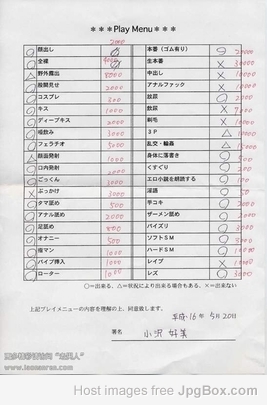 ＊＊＊Play Menu＊＊＊
2000
顔出し
全裸
野外露出 △ 8000
股間見せ ○ 2000
コスプレ ○ 300
キス ○ 1000
ディープキス ○ 2000
唾飲み ○ 3000
フェラチオ ○ 5000
顔面発射 △ 1000
口内発射 ○ 2000
ごっくん ○ 3000
ぶっかけ × 3000
タマ舐め ○ 500
アナル舐め ○ 2000
足舐め ○ 800
オナニー ○ 500
指マン ○ 1000
バイブ挿入 ○ 1000
ローター ○ 1000
本番（ゴム有り） ○ 20000
生本番 × 30000
中出し × 10000
アナルファック × 10000
放尿 ○ 2000
飲尿 ×
剃毛 × 10000
３Ｐ △ 10000
乱交・輪姦 △ 15000
身体に落書き ○ 500
くすぐり ○ 200
エロ小説を朗読する ○ 100
淫語 ○ 500
手コキ ○ 2000
ザーメン舐め ○ 2000
パイズリ ○ 3000
ソフトＳＭ ○ 3000
ハードＳＭ ○
レイプ ×
レズ ○ 3000
○＝出来る、△＝状況により出来る場合もある、×＝出来ない
上記プレイメニューの内容を理解の上、同意致します。
平成16年 5月20日
署名 小沢 好美
Host images free at JpgBox.com